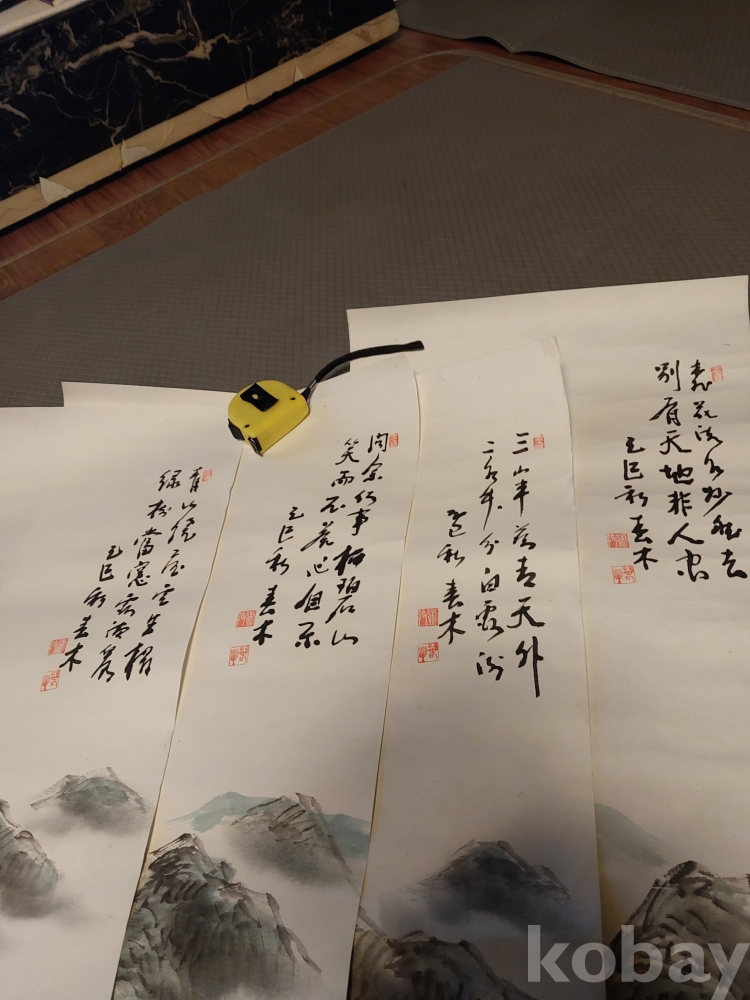 桃花流水杳然去
別有天地非人間
乙巳秋 春木
三山半落青天外
二水中分白鷺洲
乙巳秋 春木
問余何事栖碧山
笑而不答心自閑
乙巳秋 春木
青山繞屋雲生榻
綠樹當窓
乙巳秋 春木
kobay